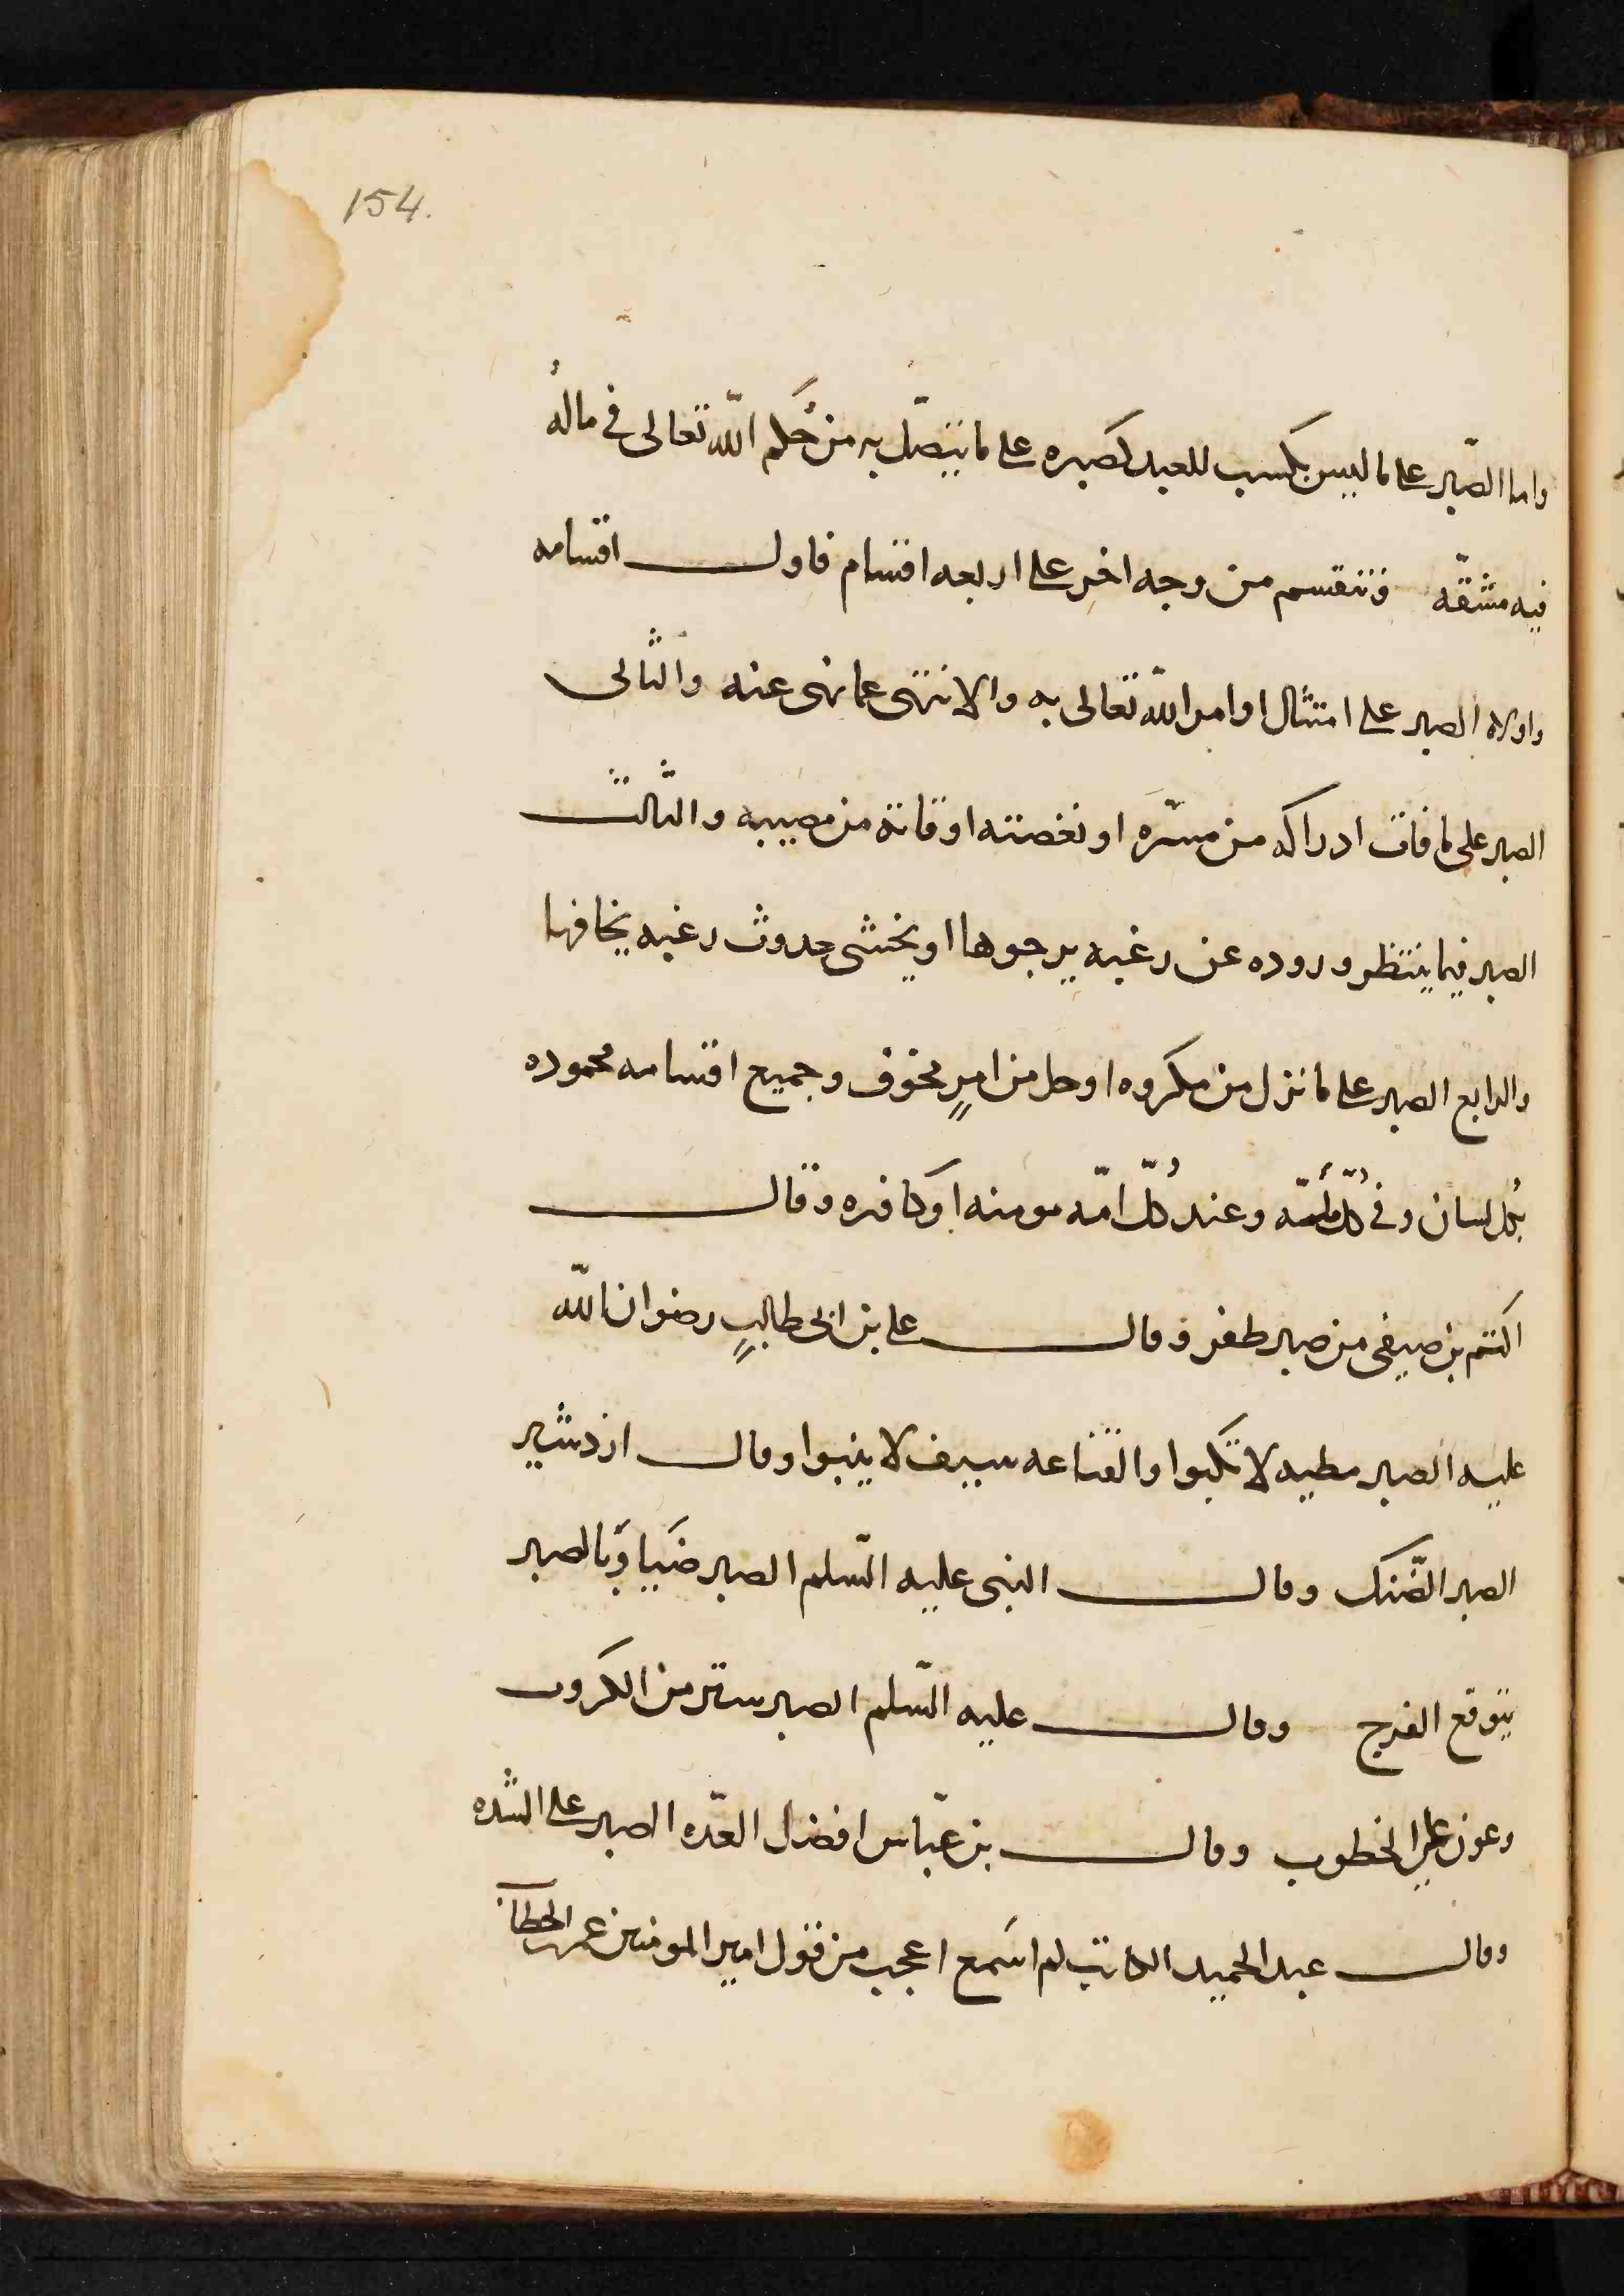 154.
واما الصّبر على ما ليس بكسب للعبد كصبره على ما يتصّل به من حُكم اللّه تعالى فى مالهُ
فيه مشقّه فتنقسم من وجه اخر على اربعه اقسام فاول اقسامه
واولاه الصبر على امتثال اوامر اللّه تعالى به والانتهى عما نهى عنه والثانى
الصبر على ما فات ادراكه من مسّره او نغصته اوقاته من مصيبه والثّالث
الصبر فيما ينتظر وروده عن رغبه يرجوها او يخشى حدوث رغبه يخافها
والرابع الصبر على ما نزل من مكروه او حل من امرٍ مخوف وجميع اقسامه محموده
بُكل لسان وفى كلّ ملّه وعند كُلّ امّه مومنه او كافره وقال
اكتم بن صيفى من صبر ظفر وقال على بن ابى طالبٍ رضوان اللّه
عليه الصبر مطيه لا تكبوا والقناعه سيف لا ينبوا وقال ازدشير
الصبر الضّنك وقال النبى عليه السّلم الصبر ضَيا وَبالصبر
يتوقع الفرج وقال عليه السّلم الصبر ستر من الكروب
وعون على الخطوب وقال بن عبّاس افضل العدّه الصبر على الشّده
وقال عبد الحميد الكاتب لم اسَمع اعجب من قول امير المومنين عمر بن الخطاب